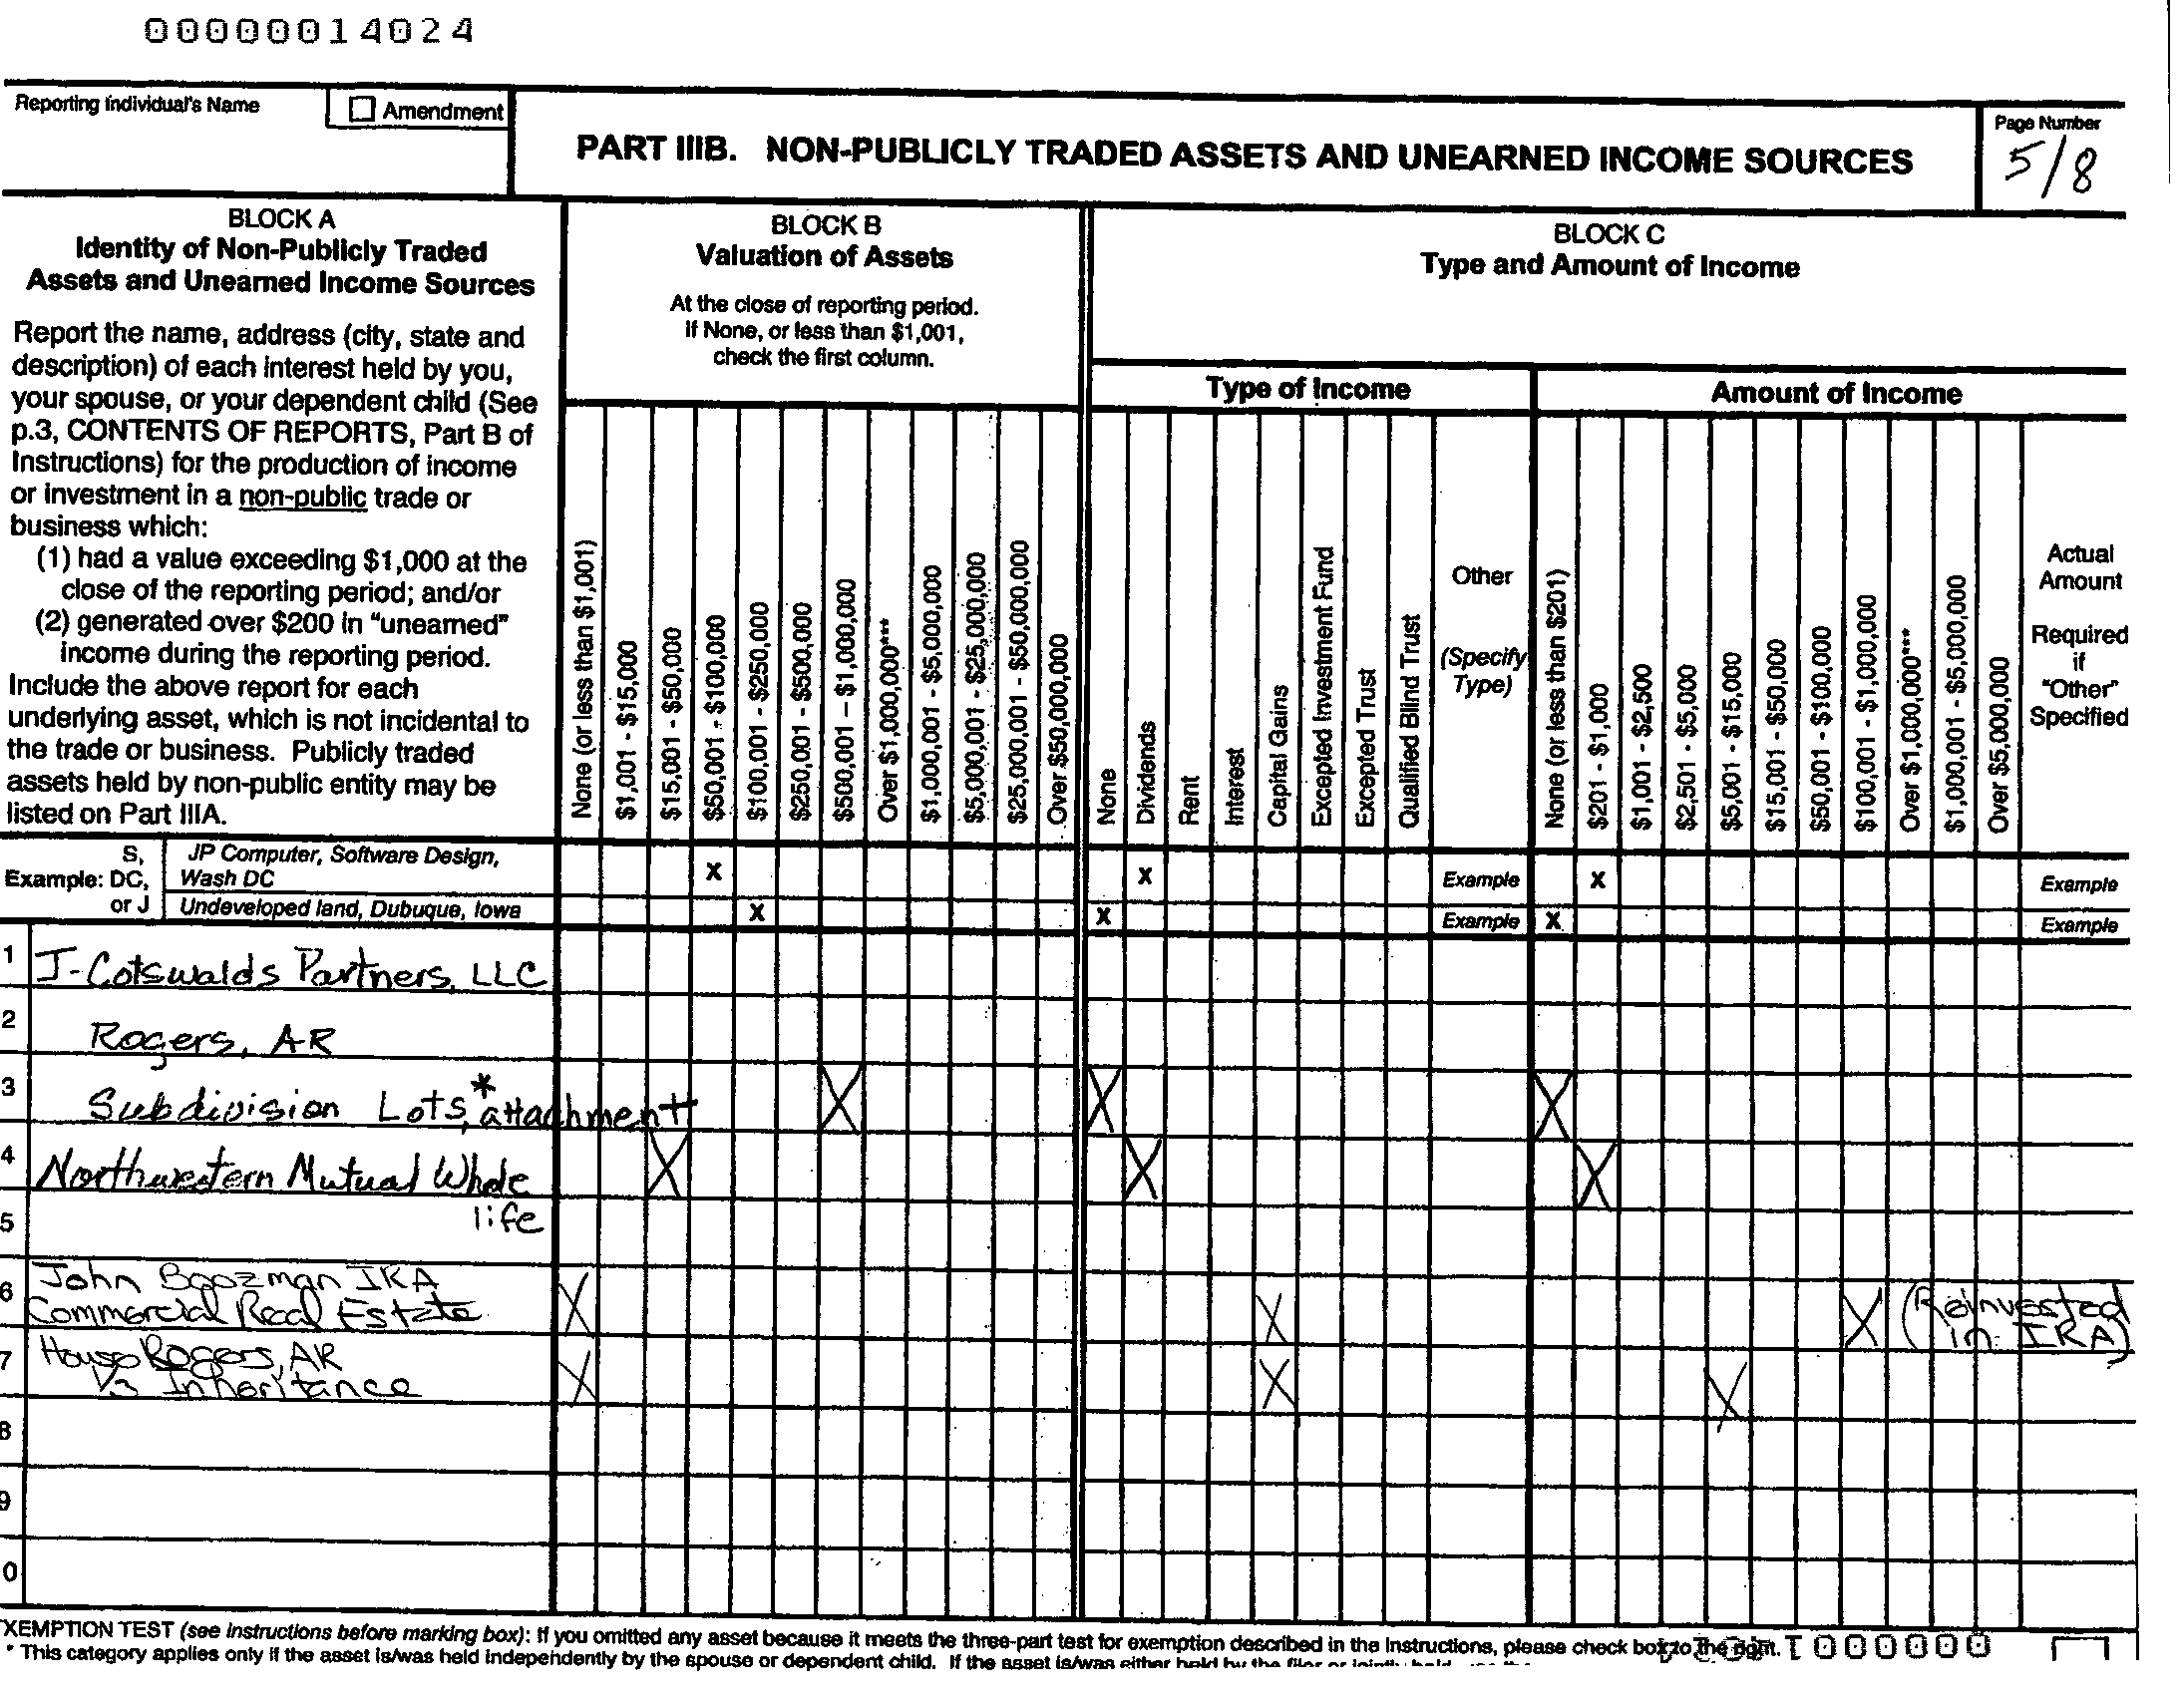 00000014024
Reporting Individual's Name
Amendment
PART IIIB. NON-PUBLICLY TRADED ASSETS AND UNEARNED INCOME SOURCES
Page Number
5/8
BLOCK A
Identity of Non-Publicly Traded
Assets and Unearned Income Sources
Report the name, address (city, state and
description) of each interest held by you,
your spouse, or your dependent child (See
p.3, CONTENTS OF REPORTS, Part B of
Instructions) for the production of income
or investment in a non-public trade or
business which:
(1) had a value exceeding $1,000 at the
close of the reporting period; and/or
(2) generated over $200 in "unearned"
income during the reporting period.
Include the above report for each
underlying asset, which is not incidental to
the trade or business. Publicly traded
assets held by non-public entity may be
listed on Part IIIA.
BLOCK B
Valuation of Assets
At the close of reporting period.
If None, or less than $1,001,
check the first column.
None (or less than $1,001)
$1,001 - $15,000
$15,001 - $50,000
$50,001 - $100,000
$100,001 - $250,000
$250,001 - $500,000
$500,001 – $1,000,000
Over $1,000,000***
$1,000,001 - $5,000,000
$5,000,001 - $25,000,000
$25,000,001 - $50,000,000
Over $50,000,000
BLOCK C
Type and Amount of Income
Type of Income
None
Dividends
Rent
Interest
Capital Gains
Excepted Investment Fund
Excepted Trust
Qualified Blind Trust
Other
(Specify
Type)
Amount of Income
None (or less than $201)
$201 - $1,000
$1,001 - $2,500
$2,501 - $5,000
$5,001 - $15,000
$15,001 - $50,000
$50,001 - $100,000
$100,001 - $1,000,000
Over $1,000,000***
$1,000,001 - $5,000,000
Over $5,000,000
Actual
Amount
Required
if
"Other"
Specified
Example:
S,
DC,
or J
JP Computer, Software Design,
Wash DC
X X Example X Example
Undeveloped land, Dubuque, Iowa X X Example X Example
1 J-Cotswalds Partners, LLC
2 Rogers, AR
3 Subdivision Lots,* attachment X X X
4 Northwestern Mutual Whole X X X
5 life
6 John Boozman IRA
Commercial Real Estate X X X (Reinvested
in IRA)
7 House Rogers, AR
1/3 Inheritance X X X
8
9
0
XEMPTION TEST (see instructions before marking box): If you omitted any asset because it meets the three-part test for exemption described in the instructions, please check box to the right.
* This category applies only if the asset is/was held independently by the spouse or dependent child. If the asset is/was either held by the filer or jointly held